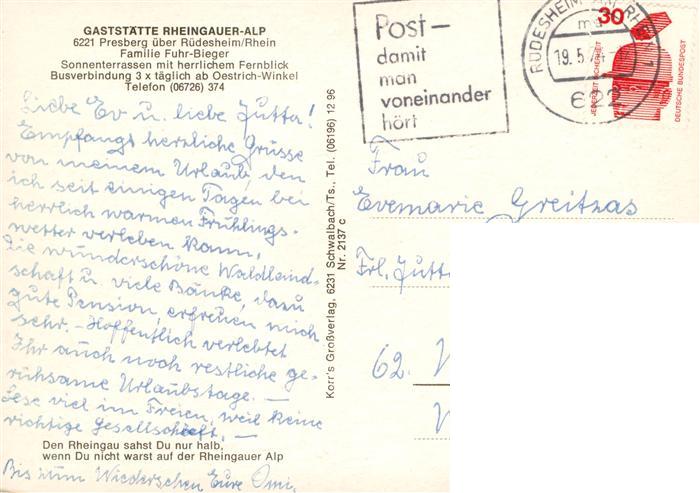 GASTSTÄTTE RHEINGAUER-ALP
6221 Presberg über Rüdesheim/Rhein
Familie Fuhr-Bieger
Sonnenterrassen mit herrlichem Fernblick
Busverbindung 3 x täglich ab Oestrich-Winkel
Telefon (06726) 374
Liebe Ev u. liebe Jutta!
Empfangt herrliche Grüsse
von meinem Urlaub, den
ich seit einigen Tagen bei
herrlich warmen Frühlings-
wetter verleben kann.
Die wunderschöne Waldland-
schaft u. viele Bänke, dazu
gute Pension, erfreuen mich
sehr. - Hoffentlich verlebtet
Ihr auch noch restliche ge-
ruhsame Urlaubstage. -
Lese viel im Freien, weil keine
richtige Gesellschaft. -
Den Rheingau sahst Du nur halb,
wenn Du nicht warst auf der Rheingauer Alp
Bis zum Wiedersehen Eure Omi.
Korr's Großverlag, 6231 Schwalbach/Ts., Tel. (06196) 12 96
Nr. 2137 c
Post-
damit
man
voneinander
hört
RÜDESHEIM AM RHEIN 1
md
19.5.
622
30
JEDERZEIT SICHERHEIT
DEUTSCHE BUNDESPOST
Frau
Evemarie Greitzas
Frl. Jutt
62. W
W